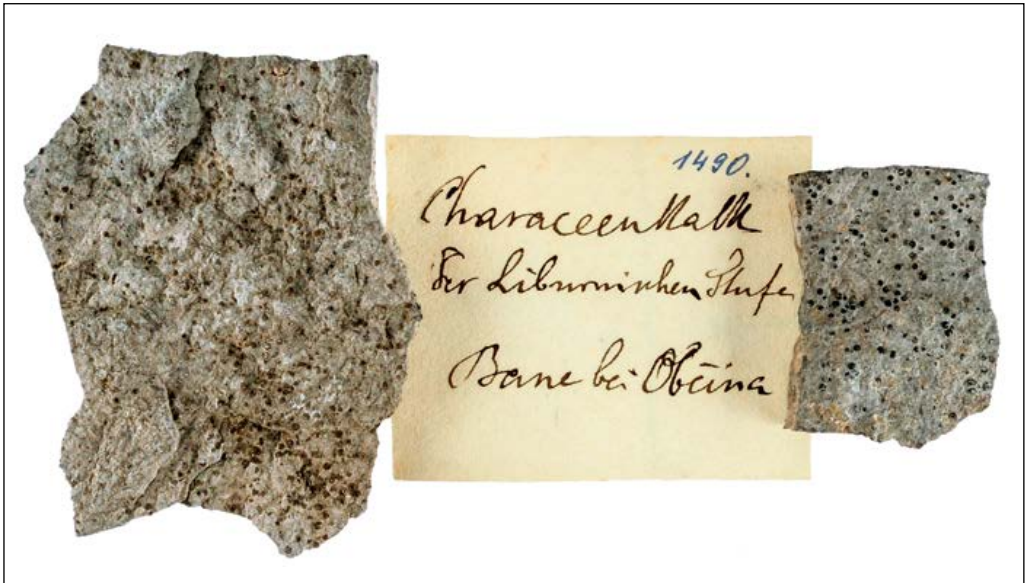 1490.
Characeenkalk
der Liburnischen Stufe
Bane bei Občina